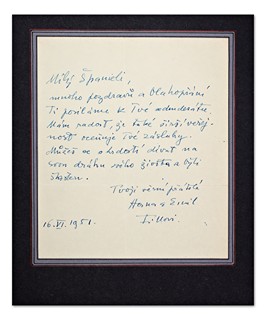 Milý Španieli,
mnoho pozdravů a blahopřání
Ti posíláme k Tvé
Mám radost, že také širší veřej-
nost oceňuje Tvé zásluhy.
Můžeš se s hrdostí dívat na
svou dráhu svého života a býti
šťasten.
Tvoji věrní přátelé
Hana a Emil
Fillovi
16.VI.1951.